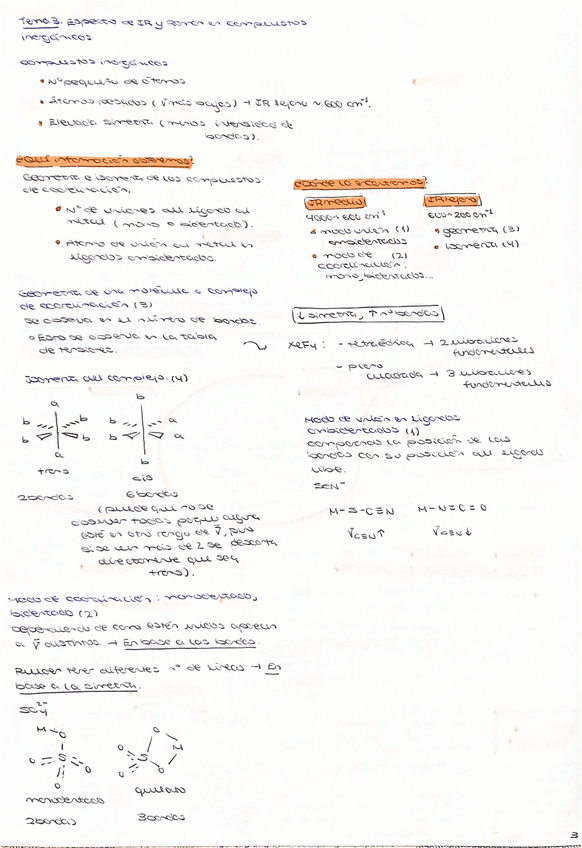 Tema 3. Espectro de IR y Raman en compuestos
inorgánicos
compuestos inorgánicos
• Nº pequeño de átomos
• Átomos pesados (ν̄ más bajas) → IR lejano ~ 600 cm⁻¹.
• Elevada simetría (menos intensidad de
bandas).
¿Qué información obtenemos?
Geometría e isomería de los compuestos
de coordinación.
• Nº de uniones del ligando al
metal (mono o bidentado).
• Átomo de unión al metal en
ligandos ambidentados.
¿Dónde lo encontramos?
IR medio
4000-600 cm⁻¹
• modo unión (1)
ambidentados
• modo de (2)
coordinación:
mono, bidentados...
IR lejano
600-200 cm⁻¹
• geometría (3)
• isomería (4)
Geometría de una molécula o complejo
de coordinación (3)
se observa en el número de bandas.
• Esto se observa en la tabla
de tensiones.
↓ simetría, ↑ nº bandas
XeF4: - tetraédrica → 2 vibraciones
fundamentales
- plano
cuadrada → 3 vibraciones
fundamentales
Isomería del complejo. (4)
a
b b
b b
a
trans
2 bandas
b
b a
b a
b
cis
6 bandas
(puede que no se
observen todas porque alguna
esté en otro rango de ν̄, pero
si se ven más de 2 se descarta
directamente que sea
trans).
Modo de unión en ligandos
ambidentados (1)
comparando la posición de las
bandas con su posición del ligando
libre.
SCN⁻
M-S-C≡N M-N=C=O
ν̄C≡N↑ ν̄C≡N↓
Modo de coordinación: monodentado,
bidentado (2)
Dependiendo de como estén unidos aparecen
a ν̄ distintos → En base a las bandas.
Pueden tener diferentes nº de líneas → En
base a la simetría.
SO₄²⁻
M-O
S
O O
O
monodentado
2 bandas
O
O M
S
O O
quelato
3 bandas
3